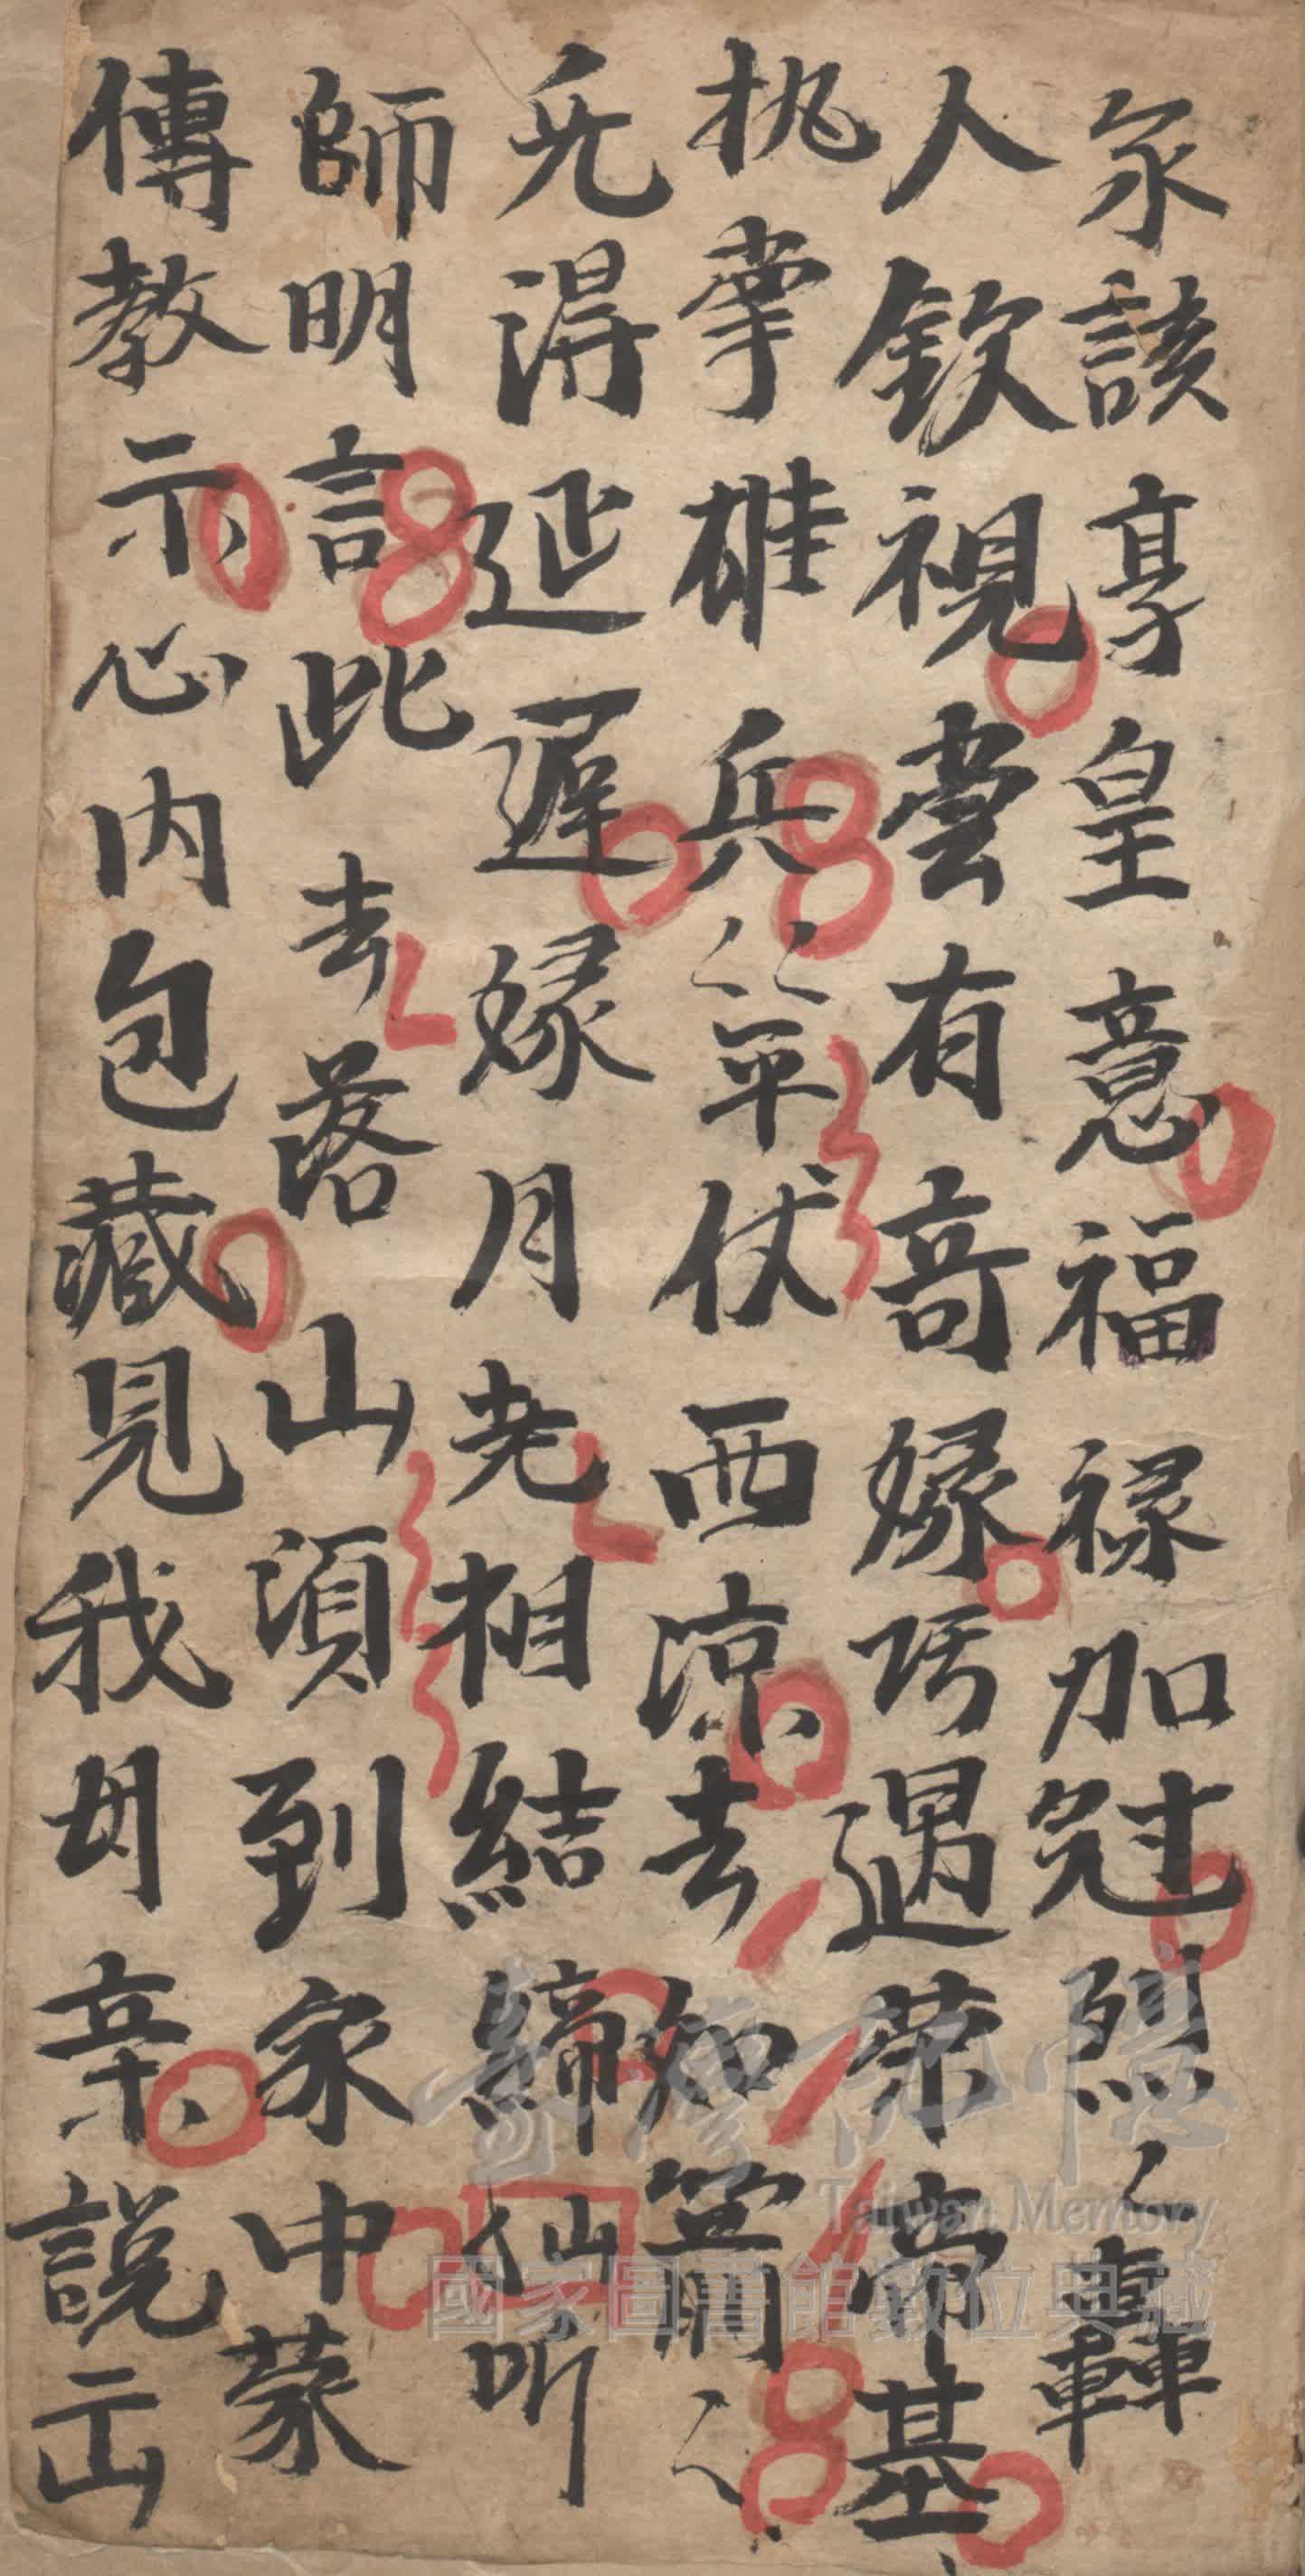 家該享皇意福祿加冠烈〻轟
人欽視雲有奇緣巧遇荣帝基
执掌雄兵〻〻平伏西凉去如 〻
免得延遲緣月老相結締仙听
師明言此去落山須到家中蒙
傳教示心内包藏見我母亲說出
臺灣記憶
Taiwan Memory
國家圖書館數位典藏